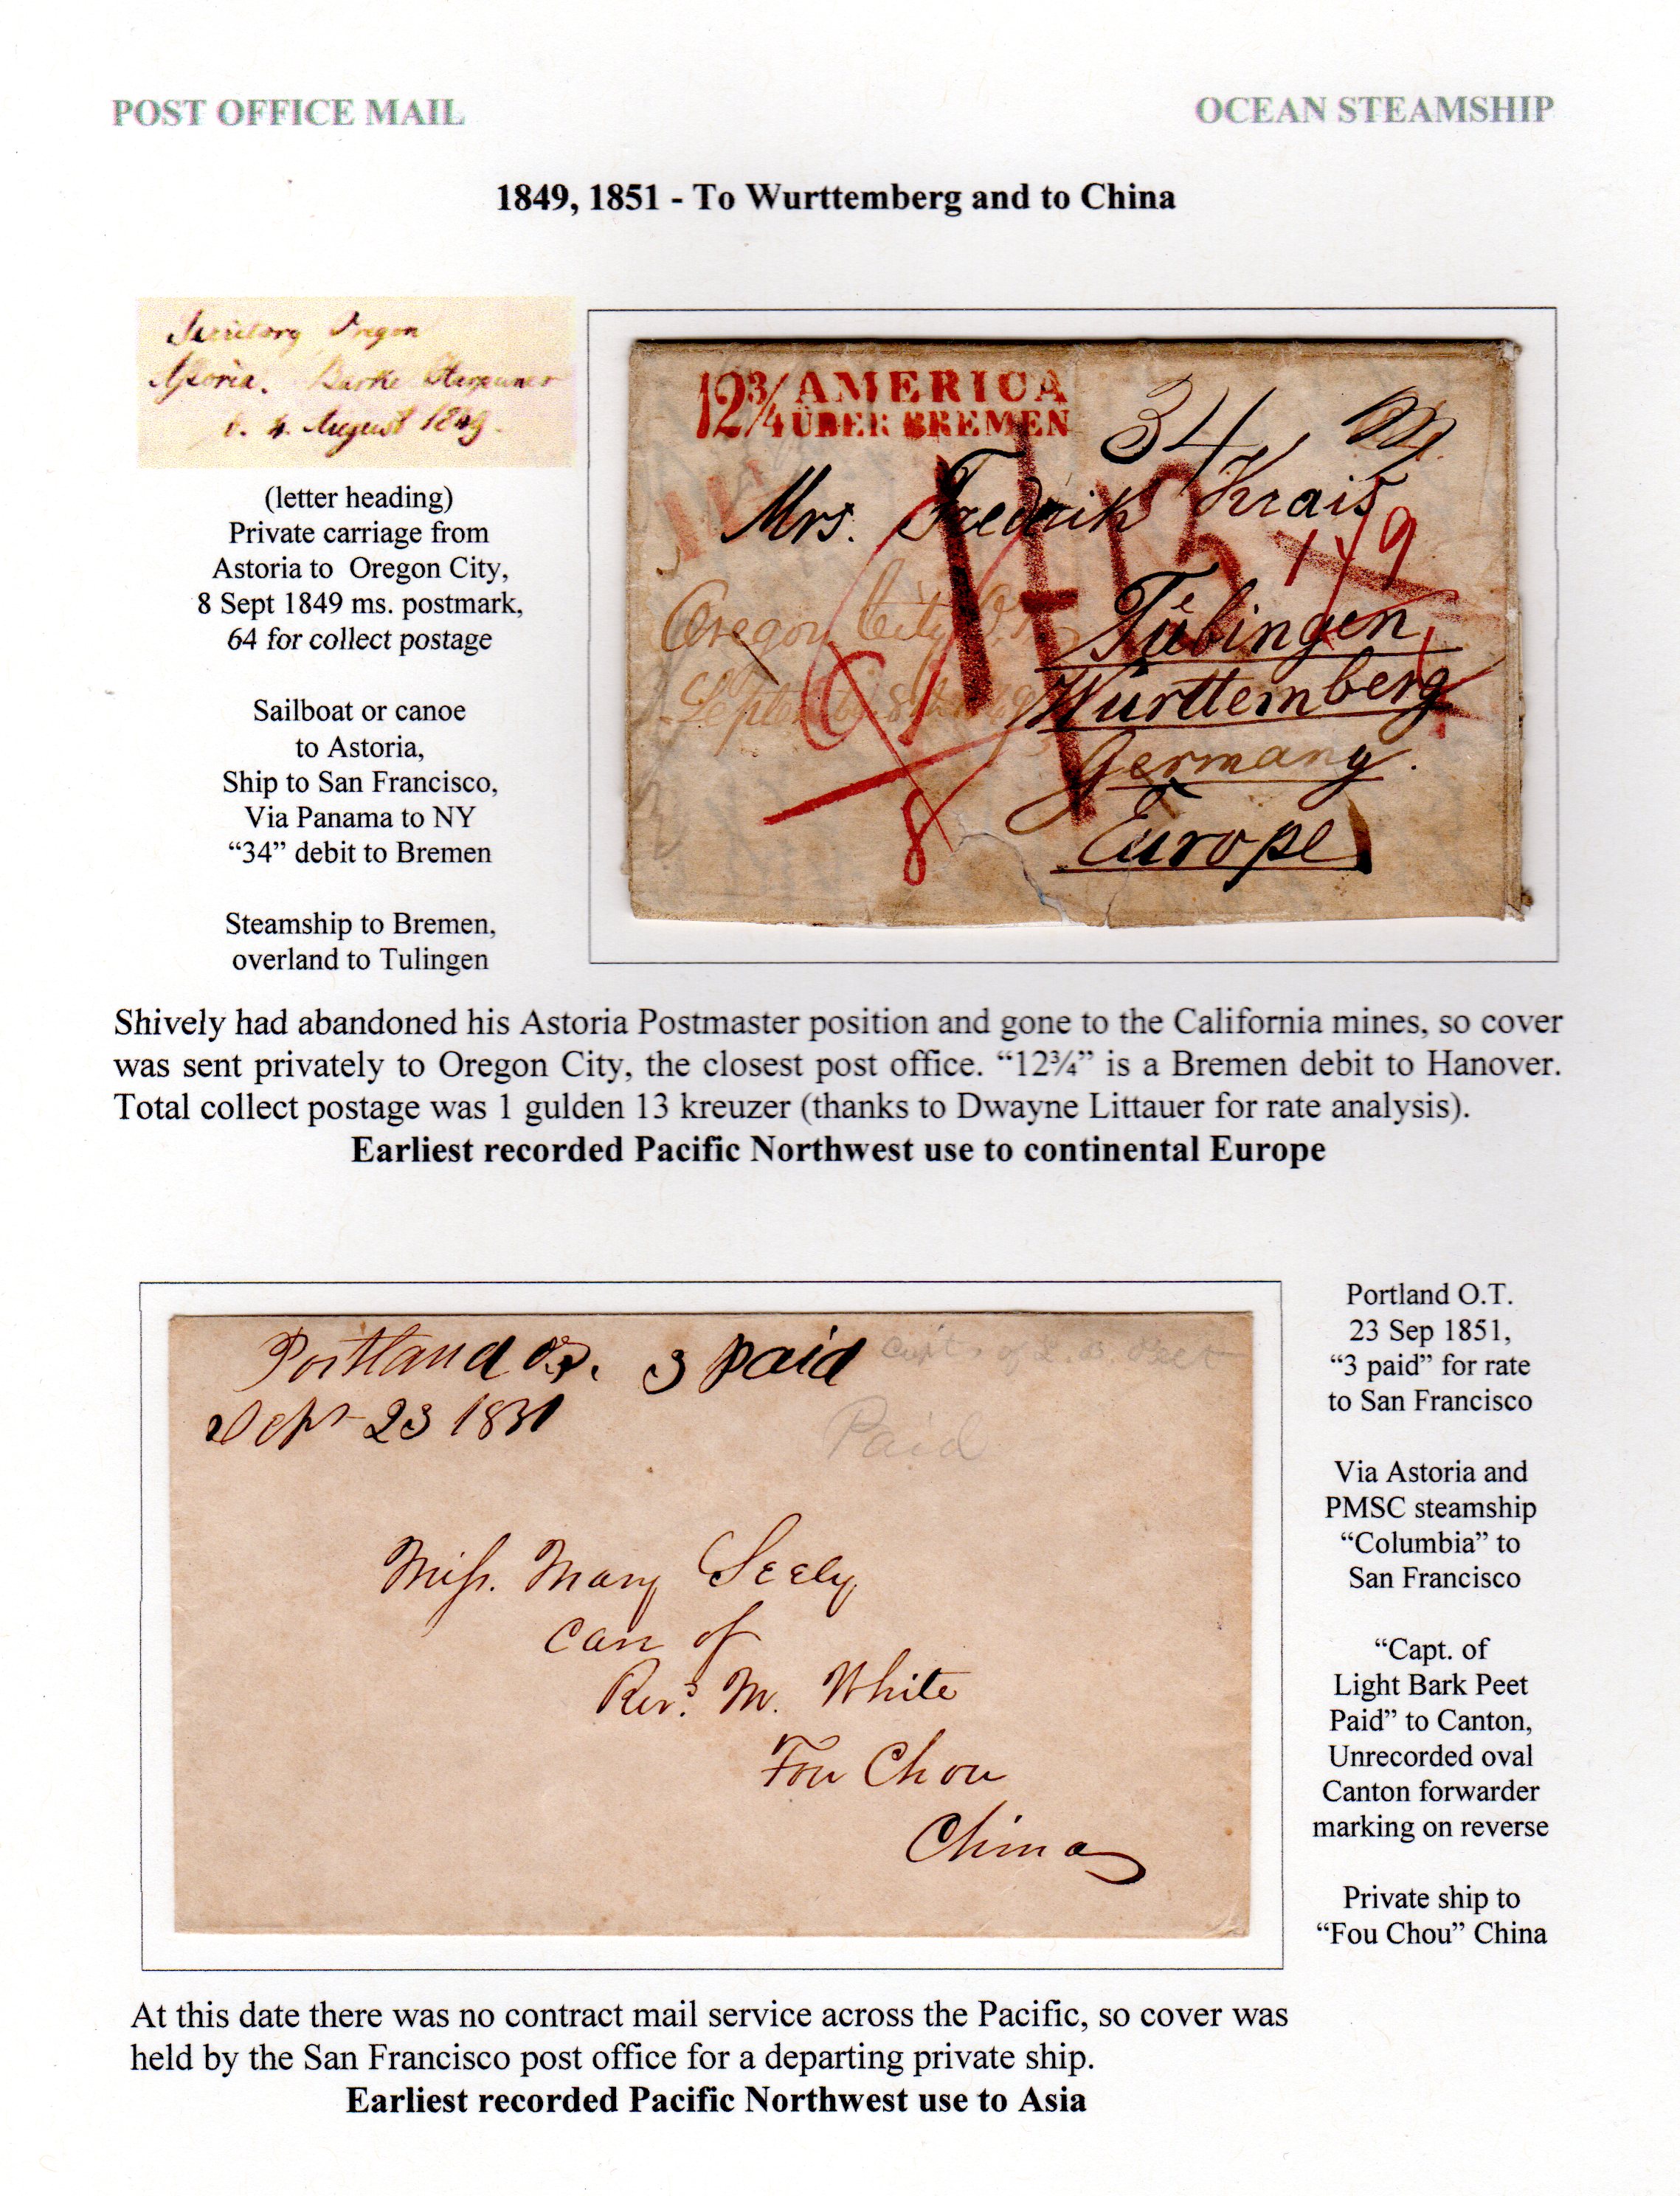 POST OFFICE MAIL
OCEAN STEAMSHIP
1849, 1851 - To Wurttemberg and to China
Territory Oregon
Astoria. Barke
4. August 1849.
(letter heading)
Private carriage from
Astoria to Oregon City,
8 Sept 1849 ms. postmark,
64 for collect postage
Sailboat or canoe
to Astoria,
Ship to San Francisco,
Via Panama to NY
“34” debit to Bremen
Steamship to Bremen,
overland to Tulingen
12¾ AMERICA
ÜBER BREMEN
34
Mrs. Fredrik Krais
1/9
Oregon City O.T.
Tübingen
September 8th 1849
Württemberg
Germany.
8
Europe
Shively had abandoned his Astoria Postmaster position and gone to the California mines, so cover
was sent privately to Oregon City, the closest post office. “12¾” is a Bremen debit to Hanover.
Total collect postage was 1 gulden 13 kreuzer (thanks to Dwayne Littauer for rate analysis).
Earliest recorded Pacific Northwest use to continental Europe
Portland O.T. 3 paid Capt. of L. B Peet
Sept 23 1851
Paid
Miss. Mary Seely
Care of
Revd. M. White
Fou Chou
China
Portland O.T.
23 Sep 1851,
“3 paid” for rate
to San Francisco
Via Astoria and
PMSC steamship
“Columbia” to
San Francisco
“Capt. of
Light Bark Peet
Paid” to Canton,
Unrecorded oval
Canton forwarder
marking on reverse
Private ship to
“Fou Chou” China
At this date there was no contract mail service across the Pacific, so cover was
held by the San Francisco post office for a departing private ship.
Earliest recorded Pacific Northwest use to Asia